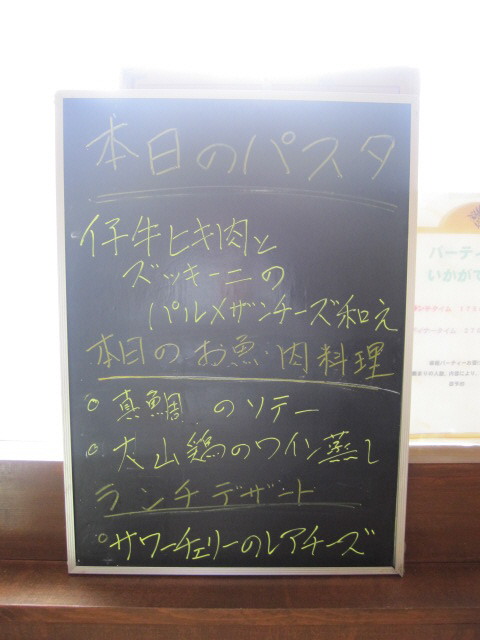 本日のパスタ
仔牛ヒキ肉と
ズッキーニの
パルメザンチーズ和え
本日のお魚・肉料理
真鯛 のソテー
大山鶏のワイン蒸し
ランチデザート
サワーチェリーのレアチーズ
パーティ
いかがで